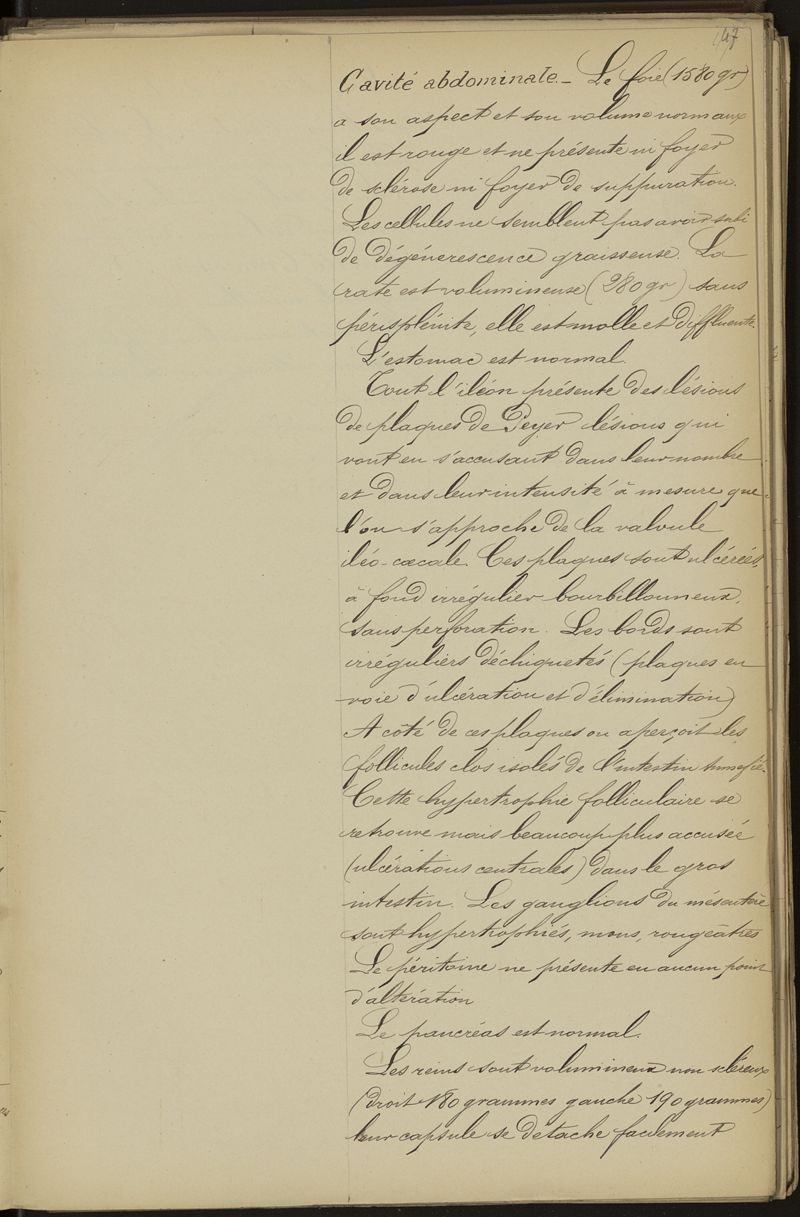 147
Cavité abdominale. - Le foie (1580 gr)
a son aspect et son volume normaux
il est rouge et ne présente ni foyer
de sclérose ni foyer de suppuration.
Les cellules ne semblent pas avoir subi
de dégénerescence graisseuse. La
rate est volumineuse (280 gr) sans
périsplénite, elle est molle et diffluente.
L'estomac est normal
Tout l'iléon présente des lésions
de plaques de Peyer lésions qui
vont en s'accusant dans leur nombre
et dans leur intensité à mesure que
l'on s'approche de la valvule
iléo-cœcale. Ces plaques sont ulcérées,
à fond irrégulier bourbillonneux,
sans perforation. Les bords sont
irréguliers déchiquetés (plaques en
voie d'ulcération et d'élimination)
A côté de ces plaques on aperçoit les
follicules clos isolés de l'intestin tuméfiés.
Cette hypertrophie folliculaire se
retrouve mais beaucoup plus accusée
(ulcérations centrales) dans le gros
intestin. Les ganglions du mésentère
sont hypertrophiés, mous, rougeâtres
Le péritoine ne présente en aucun point
d'altération
Le pancréas est normal.
Les reins sont volumineux non scléreux
(droit 180 grammes gauche 190 grammes)
leur capsule se détache facilement